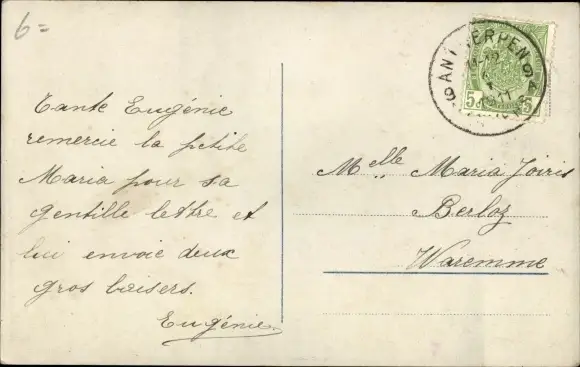 6=
ANTWERPEN 6
5 5
6 ANVERS
Tante Eugénie
remercie la petite
Maria pour sa
gentille lettre et
lui envoie deux
gros baisers.
Eugénie
Melle Maria Joiris
Berloz
Waremme